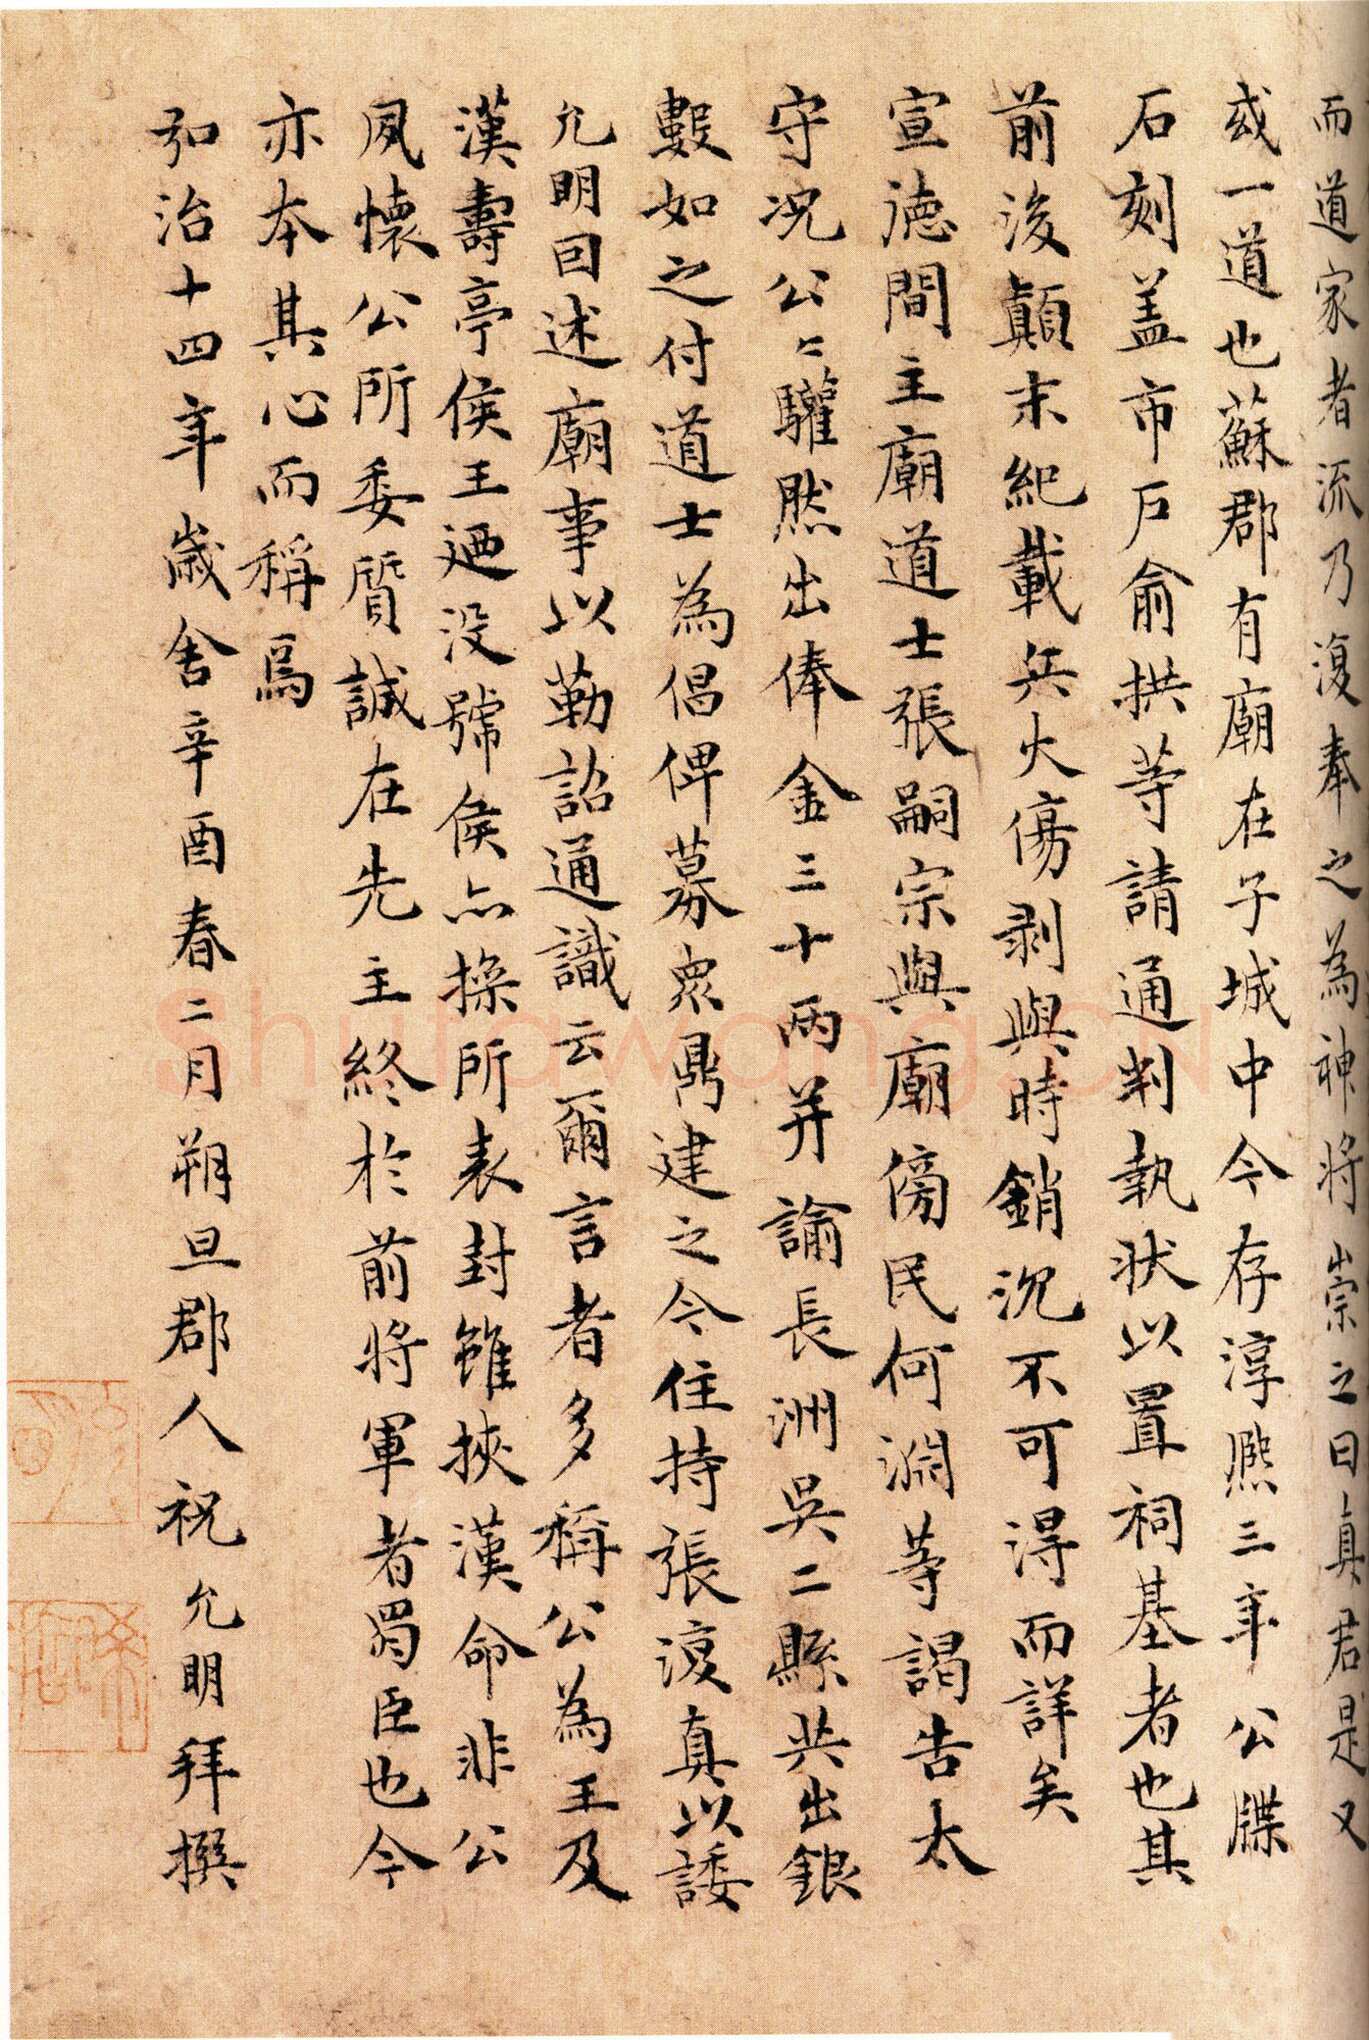 而道家者流乃復奉之為神將崇之曰真君是又
或一道也蘇郡有廟在子城中今存淳熙三年公牒
石刻盖市戶俞拱等請通判執狀以置祠基者也其
前後顛末紀載兵火傷剥與時銷沉不可得而詳矣
宣德間主廟道士張嗣宗與廟傍民何淵等謁告太
守况公〻驩然出俸金三十兩并諭長洲吳二縣共出銀
數如之付道士為倡俾募衆鼎建之今住持張復真以諉
允明因述廟事以勒詔通識云爾言者多稱公為王及
漢壽亭侯王廼没號侯亦操所表封雖挾漢命非公
夙懷公所委質誠在先主終於前將軍者蜀臣也今
亦本其心而稱焉
弘治十四年歲舍辛酉春二月朔旦郡人祝允明拜撰